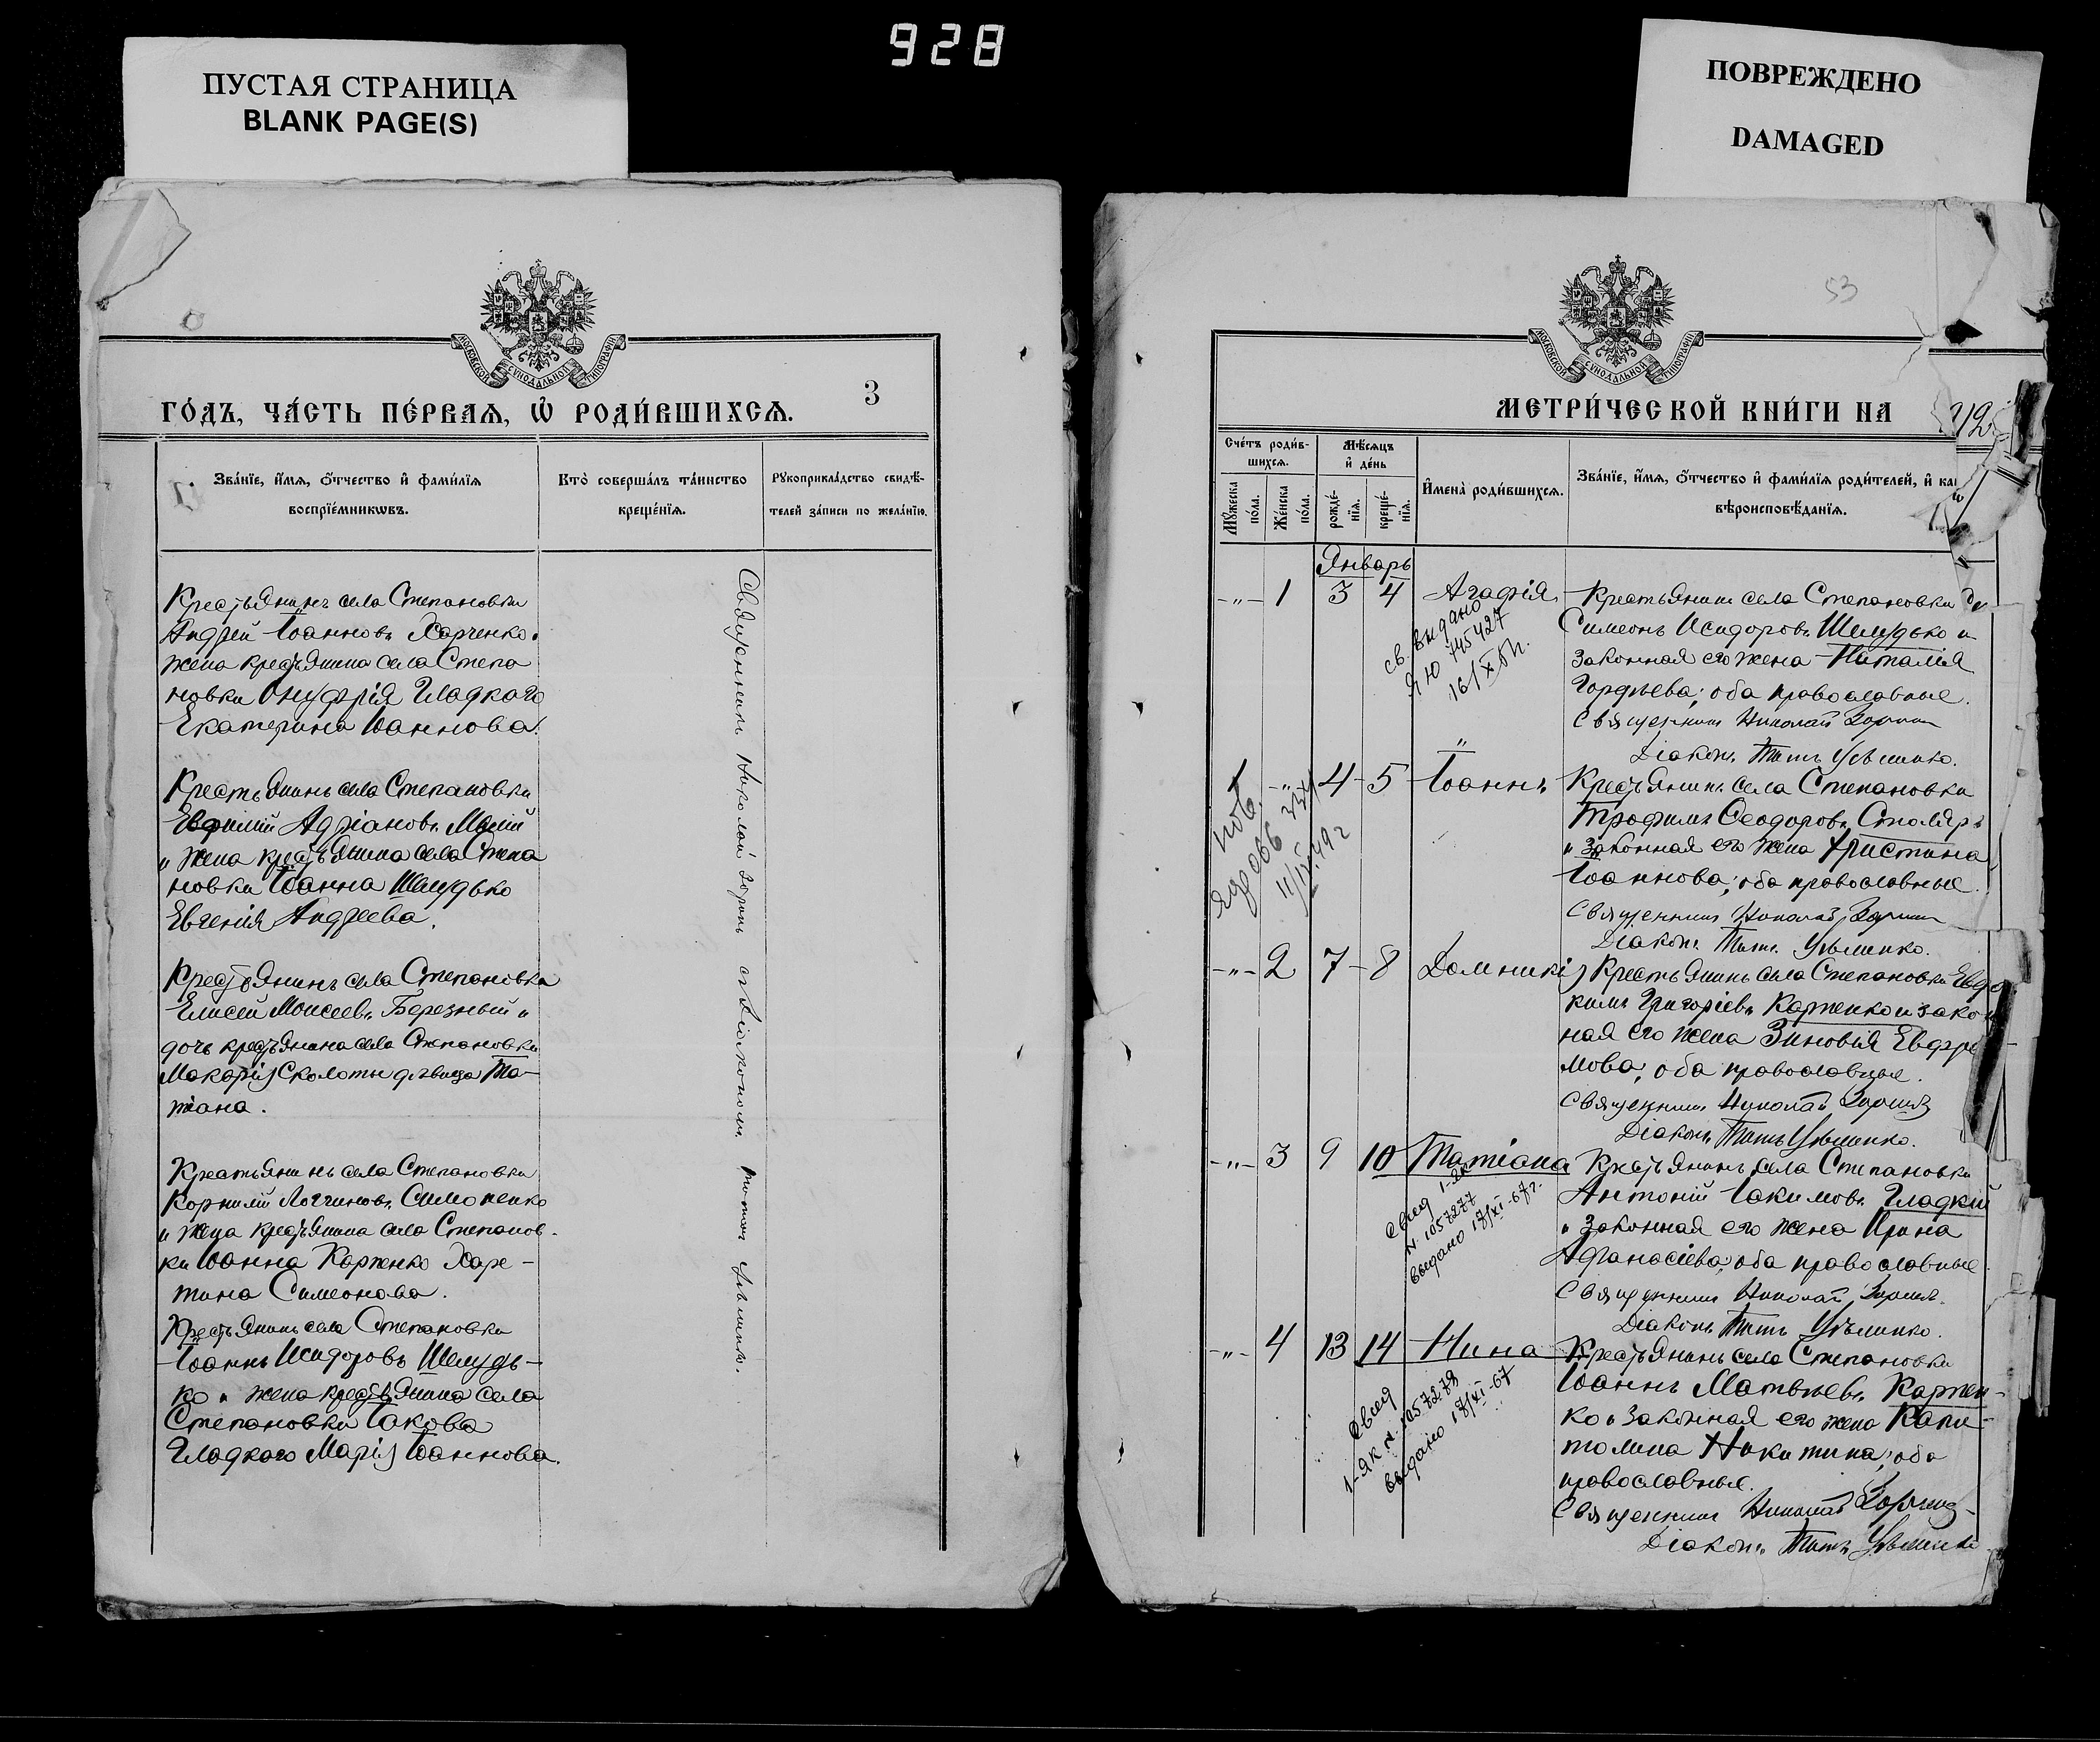 928
ПУСТАЯ СТРАНИЦА
BLANK PAGE(S)
ПОВРЕЖДЕНО
DAMAGED
МОСКОВСКОЙ СѴНОДАЛЬНОЙ ТИПОГРАФІИ
3
ГО́ДЪ, ЧА́СТЬ ПЕ́РВАѦ, Ѡ҆ РОДИ́ВШИХСѦ.
Зва́нїе, и҆́мѧ, ѻ҆́тчество и҆ фами́лїѧ
воспрїе́мникѡвъ.
Кто̀ соверша́лъ та́инство
креще́нїѧ.
Рꙋкоприкла́дство свидѣ́-
телей за́писи по жела́нїю.
Крестьянинъ села Степановки
Андрей Іоанновъ Харченко
жена крестьянина села Степа
новки Онуфрія Гладкого
Екатерина Іоаннова.
Крестьянинъ села Степановки
Евфимій Адріановъ Малій
и жена крестьянина села Степа
новки Іоанна Шелудько
Евгенія Андреева.
Крестьянинъ села Степановки
Елисей Моисеевъ Березный и
дочь крестьянина села Степановки
Макарія Сколоты дѣвица Та-
тіана.
Крестьянинъ села Степановки
Корнилій Логгиновъ Симоненко
и жена крестьянина села Степанов-
ки Іоанна Карпенко Харе-
тина Симеонова.
Крестьянинъ села Степановки
Іоаннъ Исидоровъ Шелудь-
ко и жена крестьянина села
Степановки Іакова
Гладкого Марія Іоаннова.
Священникъ Николай съ Діакономъ Титомъ
53
МОСКОВСКОЙ СѴНОДАЛЬНОЙ ТИПОГРАФІИ
МЕТРИ́ЧЕСКОЙ КНИ́ГИ НА
12
Сче́тъ роди́в-
шихсѧ.
Мꙋ́жеска по́ла.
Же́нска по́ла.
Мѣ́сѧцъ
и҆ де́нь
рожде́-
нїѧ.
креще́-
нїѧ.
И҆мена̀ роди́вшихсѧ.
Зва́нїе, и҆́мѧ, ѻ҆́тчество и҆ фами́лїѧ роди́телей, и҆ ка
вѣроисповѣ́данїѧ.
Январь
-"- 1 3 4 Агафія
св. выдано
Я Ю 745427
16/X
Крестьянинъ села Степановки
Симеонъ Исидоровъ Шелудько и
законная его жена Наталія
Гордѣева; оба православные.
Священникъ Николай
Діаконъ Титъ
" -"- 4 5 Іоаннъ
Крестьянинъ села Степановки
Трофимъ Ѳеодоровъ Столяръ
и законная его жена Христина
Іоаннова; оба православные.
Священникъ Николай
Діаконъ Титъ
-"- 2 7 8 Домникія
Крестьянинъ села Степановки Евдо
кимъ Григоріевъ Карпенко и закон
ная его жена Зиновія Евфре
мова; оба православные.
Священникъ Николай
Діаконъ Титъ
-"- 3 9 10 Татіана
свид 1-ЯК
N. 1057277
выдано 17/XI-67г.
Крестьянинъ села Степановки
Антоній Іакимовъ Гладкій
и законная его жена Ирина
Афанасіева; оба православные.
Священникъ Николай
Діаконъ Титъ
-"- 4 13 14 Нина
свид
1-ЯК N. 1057279
выдано 17/XI-67
Крестьянинъ села Степановки
Іоаннъ Матвѣевъ Карпен-
ко и законная его жена Капи-
толина Никитина; оба
православные.
Священникъ Николай
Діаконъ Титъ